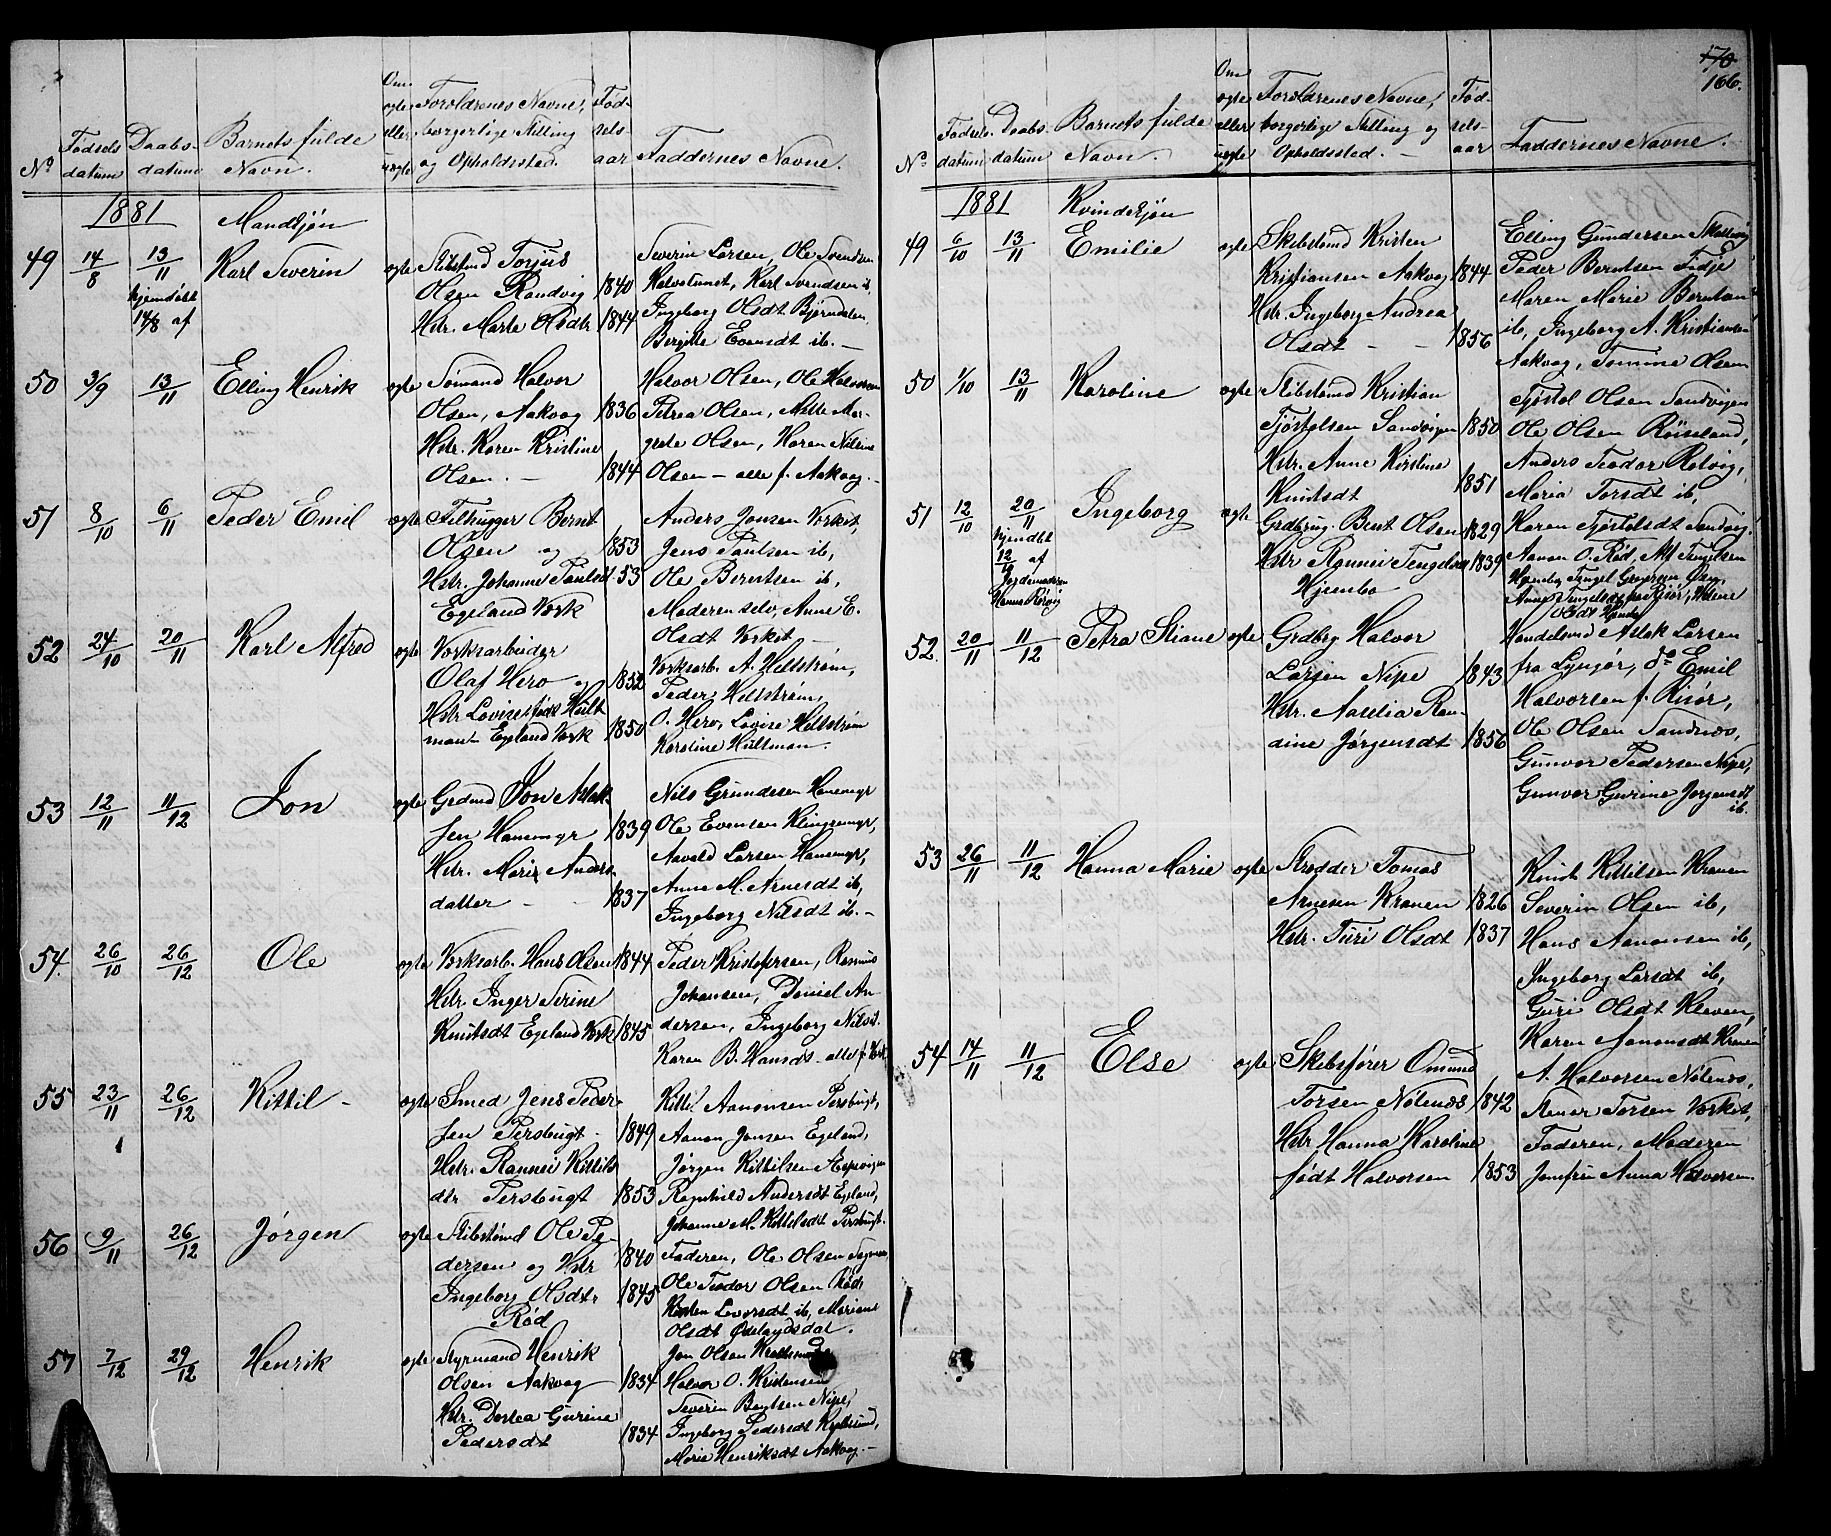 Om
ægte
eller
uægte
Forældrenes Navne,
borgerlige Stilling
og Opholdssted.
Fød-
sels-
aar
No
Fødsels
datum
Daabs-
datum
Barnets fulde
Navn.
Faddernes Navne.
1881
Mandkjøn
49 14/8 13/11 Karl Severin ægte Skibstmd Torjus
hjemdøbt
14/8 af
Olsen Randvig 1840
Hstr. Marte Olsdtr 1844
Severin Larsen, Ole Svendsen
Halvstunet, Karl Svendsen ib,
Ingeborg Olsdt Bjørndalen,
Birgitte Evensdt ib. —
50 3/9 13/11 Elling Henrik ægte Sømand Halvor
Olsen, Aakvag 1836
Hstr. Karen Kristine
Olsen. — 1844
Halvor Olsen, Ole Halvorsen
Petrea Olsen, Mette Mar-
grete Olsen, Karen Nilsine
Olsen — alle f. Aakvag. —
51 8/10 6/11 Peder Emil ægte Filhugger Bernt
Olsen og 1853
Hstr. Johanne Paulsdt 53
Egeland Værk
Anders Jensen Værket,
Jens Paulsen ib,
Ole Berntsen ib,
Moderen selv, Anne E.
Olsdt Værket —
52 24/10 20/11 Karl Alfred ægte Værksarbeider
Olaf Hero og 1852
Hstr Lovise født Hult
man — Egeland Værk 1850
Værksarb. A. Hellstrøm,
Peder Hellstrøm,
O. Hero, Lovise Hellstrøm
Karoline Hultman.
53 12/11 11/12 Jon ægte Grdmd Jon Aslak-
sen Hanemyr 1839
Hstr. Marie Anders
datter — - 1837
Nils Gundesen Hanemyr
Ole Evensen Klingremyr,
Aavald Larsen Hanemyr,
Anne M. Arnesdt ib,
Ingeborg Nilsdt ib. —
54. 26/10 26/12 Ole ægte Værksarb. Hans Olsen 1844
Hstr. Inger Serine
Knutsdt Egeland Værk 1845
Peder Kristofersen, Rasmus
Johansen, Daniel An
dersen, Ingeborg Nilsdt.
Karen B. Hansdt. alle f. Værk.
55 23/11 26/12 Kittil - ægte Smed Jens Peder-
sen Persbugt. 1849
Hstr. Rannei Kittils
dtr Persbugt 1853
Kittil Aanonsen Persbugt,
Aanon Jensen Egeland,
Jørgen Kittilsen Aspvigen
Ragnhild Andersdt Egeland,
Johanne M. Kittilsdt Persbugt.
56 9/11 26/12 Jørgen ægte Skibstmd Ole Pe-
dersen og Hstr 1840
Ingeborg Olsdtr 1845
Rød
Faderen, Ole Olsen
Ole Teodor Olsen Rød,
Kirsten Levorsdt ib, Mariane
Olsdt Ødelandsdal.
57 7/12 29/12 Henrik ægte Styrmand Henrik
Olsen Aakvag 1834
Hstr. Dortea Gurine
Pedersdt 1834
Jon Olsen
Halvor O. Kristensen
Severin Bentsen Nipe,
Ingeborg Pedersdt
Marie Henriksdt Aakvag. —
170
166.
No
Fødsels-
datum
Daabs-
datum
Barnets fulde
Navn.
Om
ægte
eller
uægte
Forældrenes Navne,
borgerlige Stilling og
Opholdssted. —
Fød-
sels-
aar
Faddernes Navne.
1881
Kvindekjøn
49 6/10 13/11 Emilie ægte Skibstmd Kristen
Kristiansen Aakvag 1844
Hstr. Ingeborg Andrea
Olsdt - - 1856
Elling Gundersen
Peder Berntsen Fidje
Maren Marie Berntsen
ib, Ingeborg A. Kristiansen
Aakvag, Tomine Olsen
50 1/10 13/11 Karoline ægte Skibstmd Kristian
Tjøstelsen Sandvigen 1850
Hstr. Anne Kirstine
Knutsdt 1851
Tjøstel Olsen Sandvigen
Ole Olsen Røiseland,
Anders Teodor Rolvig,
Maria Torsdt ib,
Karen Tjøstelsdt Sandvig.
51 12/10 20/11 Ingeborg ægte Grdbrug. Bent Olsen 1829
hjemdøbt
12/10 af
Jordemoderen
Hanna Rørvig
Hstr Rannei Tengelsdt 1839
Hjembo
Aanon O. Rød, Alf Tengelsen
Hjembo, Tengel Gregersen
Anne Tengelsdt
Olsdt Hjembo
52. 20/11 11/12 Petra Stiane ægte Grdbrg Halvor
Larsen Nipe 1843
Hstr. Aaselia Ran-
dine Jørgensdt 1856
Handelsmd Aslak Larsen
fra Lyngør, do Emil
Halvorsen f. Risør,
Ole Olsen Sandnæs,
Gunvor Pedersen Nipe,
Gunvor Gurine Jørgensdt
ib.
53 26/11 11/12 Hanna Marie ægte Skrædder Tomas
Arnesen Kranen 1826
Hstr. Turi Olsdt 1837
Knut Kittilsen Kranen
Severin Olsen ib,
Hans Aanonsen ib,
Ingeborg Larsdt ib,
Guri Olsdt Kleven,
Karen Aanonsdt Kranen
54 14/11 11/12 Else ægte Skibsfører Omund
Torsen Nølenæs 1842
Hstr Hanna Karoline
født Halvorsen 1853
A. Halvorsen Nølenæs,
Stener Torsen Værket,
Faderen, Moderen
Jomfru Anna Halvorsen.